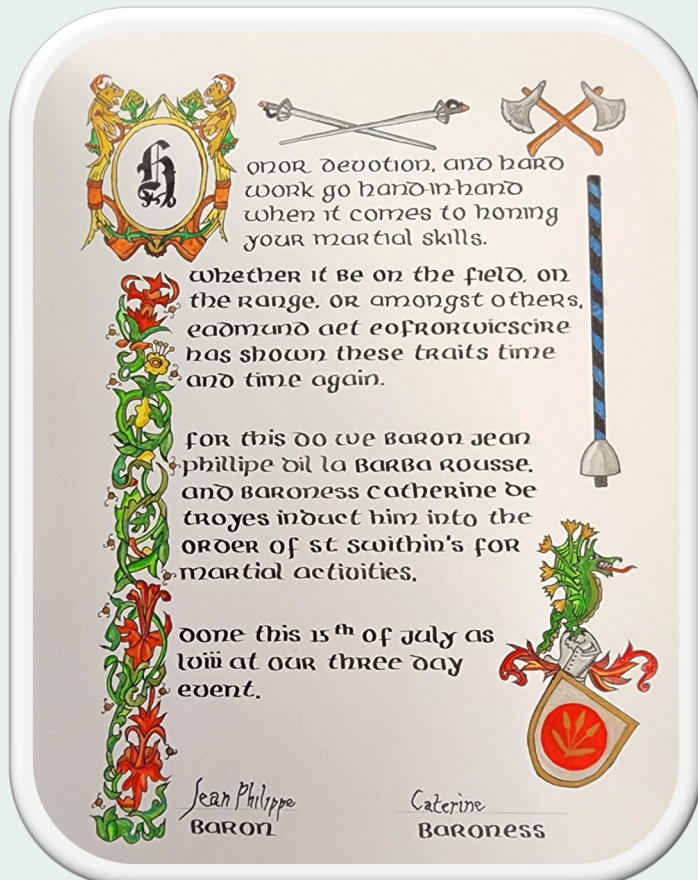 Honor devotion, and hard
work go hand-in-hand
when it comes to honing
your martial skills.
whether it be on the field, on
the range, or amongst others,
eadmund aet eofrorwicscire
has shown these traits time
and time again.
for this do we Baron Jean
phillipe dil la Barba Rousse,
and Baroness Catherine de
troyes induct him into the
order of st swithin's for
martial activities.
done this 15th of July as
lviii at our three day
event.
Jean Philippe
Caterine
Baron
Baroness